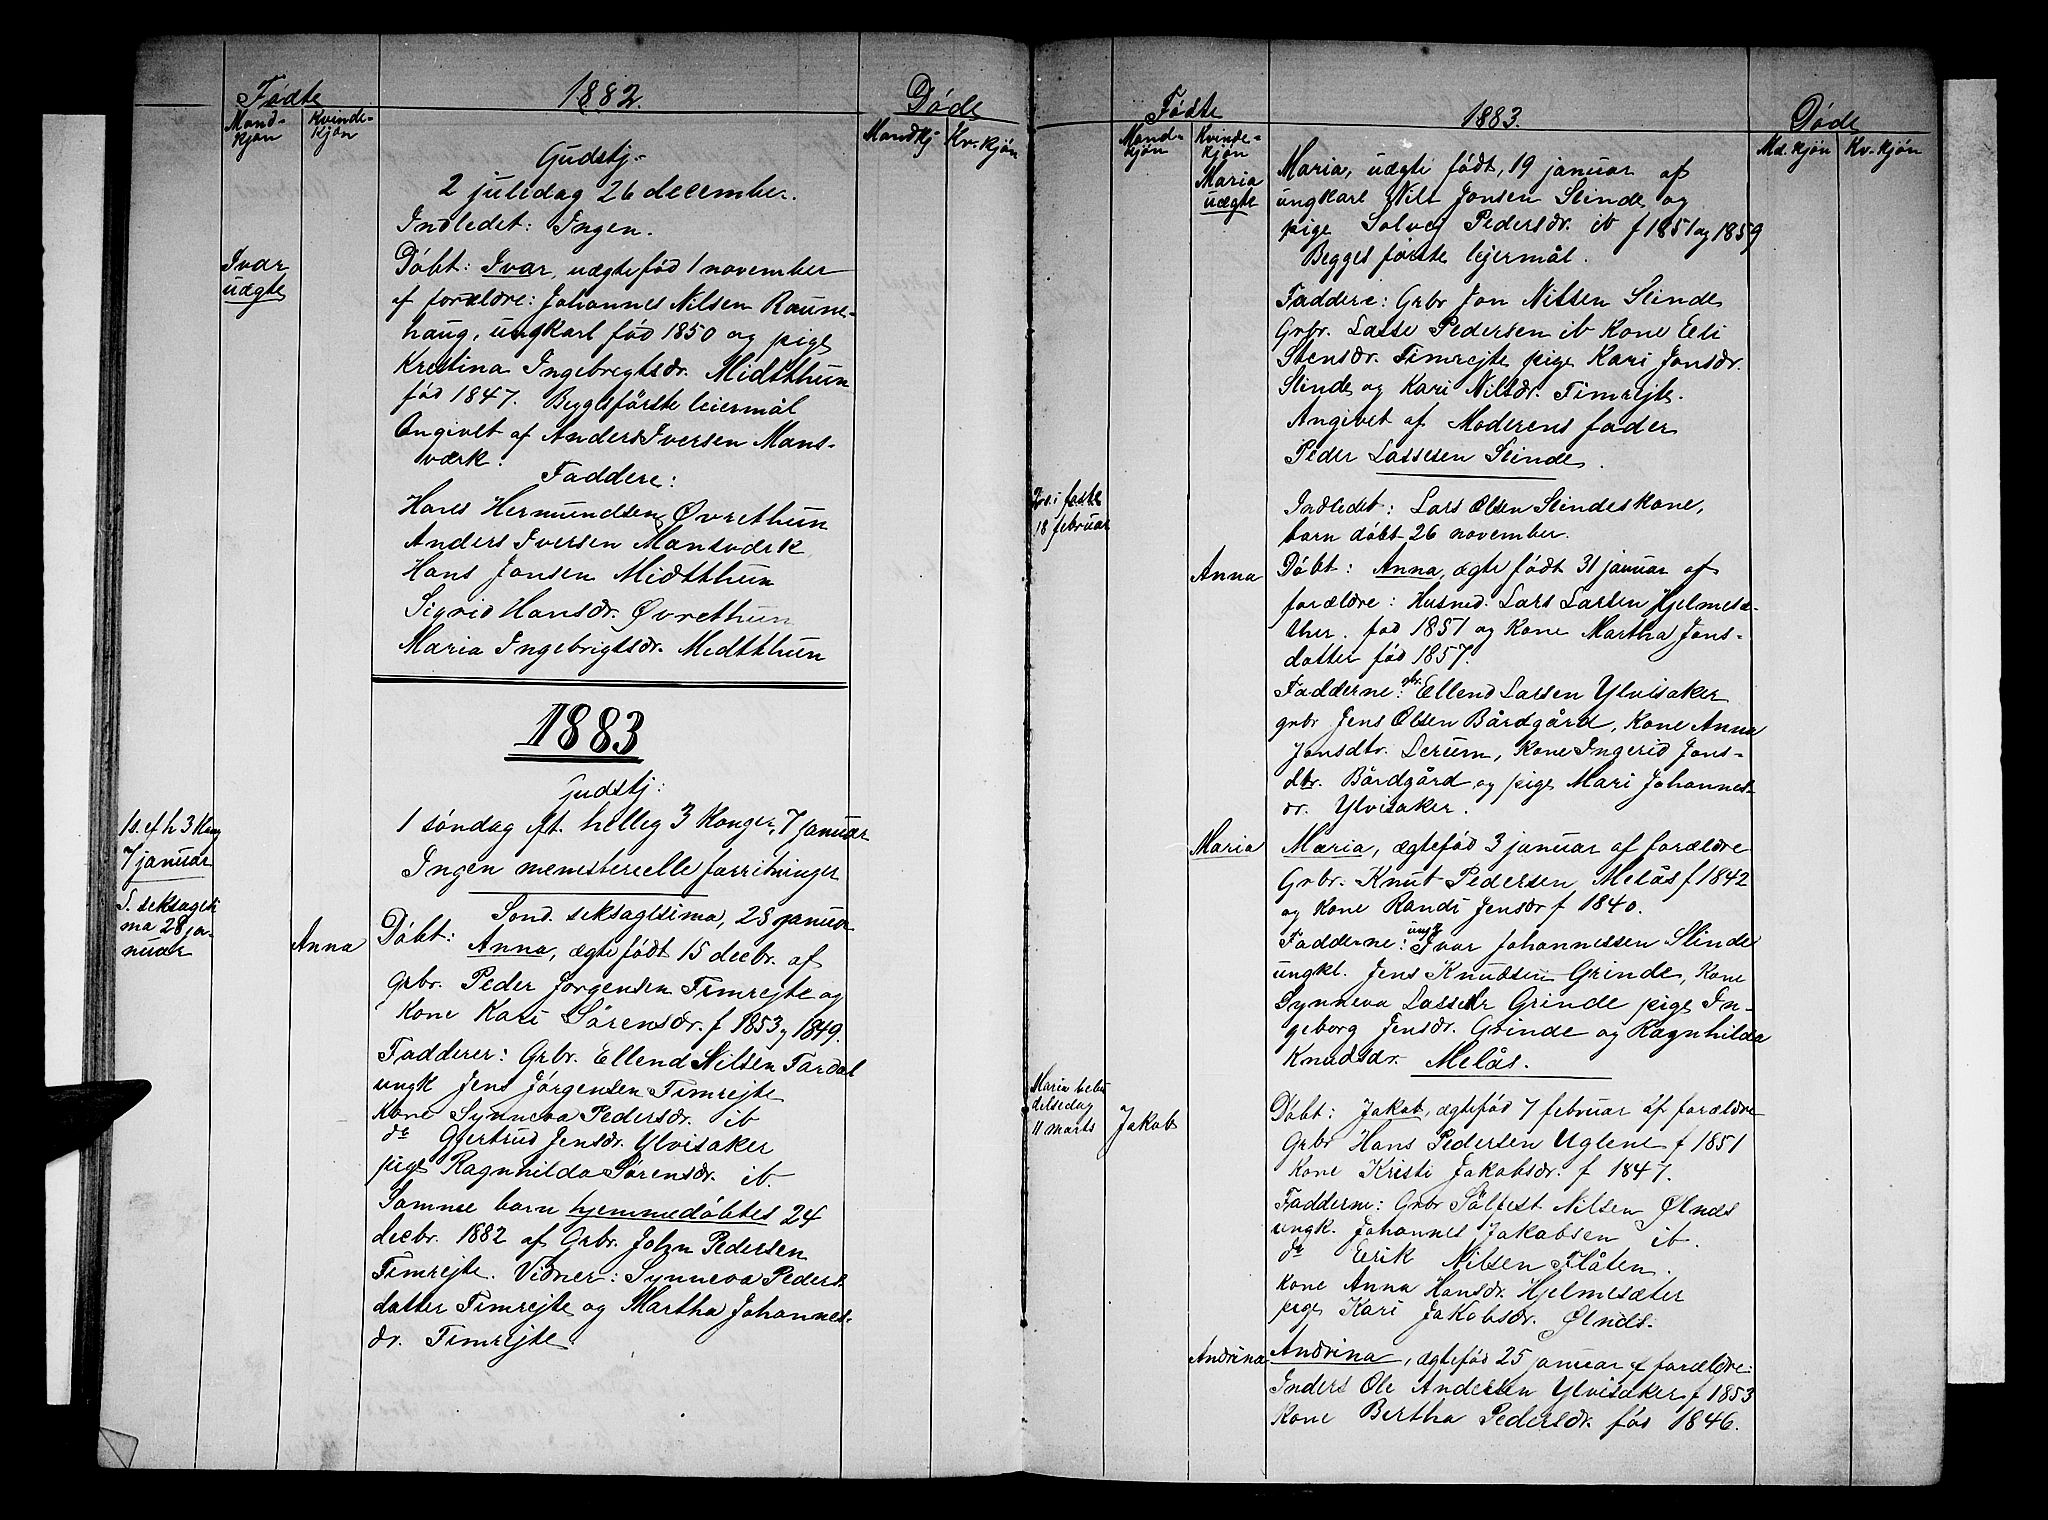 Fødte
1882.
Døde
Mand-
kjøn
Kvinde-
kjøn
Mandkj
Kv.-kjøn
Gudstj.-
2 juledag 26 december.
Indledet: Ingen.
Ivar
uægte
Døbt: Ivar, uægte fød 1 november
af forældre: Johannes Nilsen Raune-
haug, ungkarl fød 1850 og pige
Kristina Ingebrigtsdr. Midtthun
fød 1847. Begges første leiermål
Angivet af Anders Iversen Mans-
værk.
Faddere:
Hans Hermundsen Øvrethun
Anders Iversen Mansværk
Hans Jonsen Midtthun
Sigrid Hansdr. Øvrethun
Maria Ingebrigtsdr. Midtthun
1883
Gudstj:
1 s. ef h 3 Kong
7 januar
1 søndag eft. hellig 3 Konger, 7 januar
Ingen menesterielle forritninger
S. seksagesi
ma 28 ja-
nuar
Sønd. seksagesima, 28 januar
Anna
Døbt:
Anna, ægte født 15 decbr. af
Grbr. Peder Jørgensen Timrejte og
Kone Kari Sørensdr. f 1853 og 1849.
Fadderer: Grbr. Ellend Nilsen Fardal
ungk Jens Jørgensen Timrejte
Kone Synneva Pedersdr. ib
do Gjertrud Jensdr. Ylvisaker
pige Ragnhilda Sørensdr. ib.
Samme barn hjemmedøbtes 24
decbr. 1882 af Grbr. John Pedersen
Timrejte. Vidner: Synneva Peders-
datter Timrejte og Martha Johannes-
dr. Timrejte.
Fødte
1883.
Døde
Mand-
kjøn
Kvinde-
kjøn
Md. kjøn
Kv.-kjøn
Maria
uægte
Maria, uægte født, 19 januar af
ungkarl Nils Jonsen Slinde og
pige Solveg Pedersdr. ib f 1851 og 1859
Begges første lejermål.
Faddere: Grbr Jon Nilsen Slinde
Grbr. Lasse Pedersen ib Kone Eli
Stensdr. Timrejte pige Kari Jonsdr.
Slinde og Kari Nilsdr. Timrejte.
Angivet af Moderens fader
Peder Lassesen Slinde.
2 s. i faste
18 februar
Indledet: Lars Olsen Slindes kone,
barn døbt 26 november.
Anna
Døbt: Anna, ægte født 31 januar af
forældre: Husmd. Lars Larsen Hjelmesæ-
ther. fød 1851 og Kone Martha Jons-
datter fød 1857.
Fadderne: gbr. Ellend Larsen Ylvisaker
grbr Jens Olsen Bårdgård, Kone Anna
Jonsdtr. Lerum, Kone Ingerid Jons-
dtr. Bårdgård og pige Mari Johannes-
dr. Ylvisaker.
Maria
Maria, ægtefød 3 januar af forældre
Grbr. Knut Pedersen Melås f 1842
og Kone Randi Jensdr f 1840.
Fadderne: ungk Ivar Johannessen Slinde
ungkl. Jens Knudsen Grinde, Kone
Synneva Lassedr Grinde pige In-
geborg Jensdr. Grinde og Ragnhilda
Knudsdr. Melås.
Maria bebu
delsedag
11 marts
Jakob
Døbt: Jakob, ægtefød 7 februar af forældre
Grbr Hans Pedersen Uglene f 1851
Kone Kristi Jakobsdr. f 1847.
Fadderne: Grbr Sølfest Nilsen Ølnds
ungk. Johannes Jakobsen ib.
do Eerik Nilsen Flåten.
Kone Anna Hansdr. Hjelmesæter
pige Kari Jakobsdr. Ølnds.
Andrina
Andrina, ægtefød 25 januar af forældre:
Inders Ole Andersen Ylvisaker f 1853
Kone Bertha Pedersdr. fød 1846.